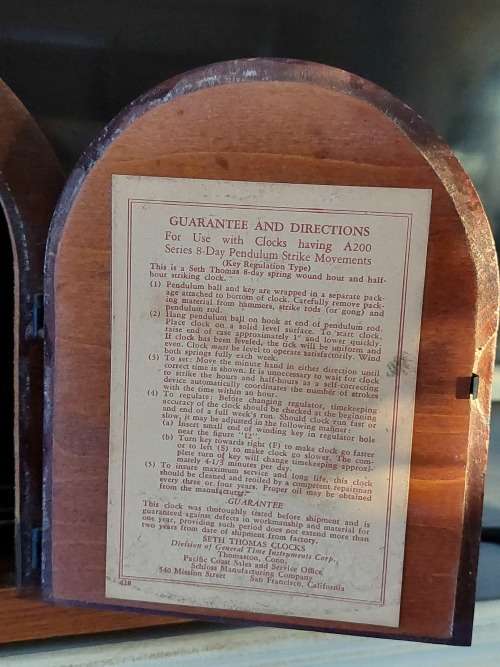 GUARANTEE AND DIRECTIONS
For Use with Clocks having A200
Series 8-Day Pendulum Strike Movements
(Key Regulation Type)
This is a Seth Thomas 8-day spring wound hour and half-
hour striking clock.
(1) Pendulum ball and key are wrapped in a separate pack-
age attached to bottom of clock. Carefully remove pack-
ing material from hammers, strike rods (or gong) and
pendulum rod.
(2) Hang pendulum ball on hook at end of pendulum rod.
Place clock on a solid level surface. To start clock,
raise end of case approximately 1" and lower quickly.
If clock has been leveled, the tick will be uniform and
even. Clock must be level to operate satisfactorily. Wind
both springs fully each week.
(3) To set: Move the minute hand in either direction until
correct time is shown. It is unnecessary to wait for clock
to strike the hours and half-hours as a self-correcting
device automatically coordinates the number of strokes
with the time within an hour.
(4) To regulate: Before changing regulator, timekeeping
accuracy of the clock should be checked at the beginning
and end of a full week's run. Should clock run fast or
slow, it may be adjusted in the following manner:
(a) Insert small end of winding key in regulator hole
near the figure "12".
(b) Turn key towards right (F) to make clock go faster
or to left (S) to make clock go slower. The com-
plete turn of key will change timekeeping approxi-
mately 4-1/3 minutes per day.
(5) To insure maximum service and long life, this clock
should be cleaned and reoiled by a competent repairman
every three or four years. Proper oil may be obtained
from the manufacturer.
GUARANTEE
This clock was thoroughly tested before shipment and is
guaranteed against defects in workmanship and material for
one year, providing such period does not extend more than
two years from date of shipment from factory.
SETH THOMAS CLOCKS
Division of General Time Instruments Corp.,
Thomaston, Conn.
Pacific Coast Sales and Service Office
Schloss Manufacturing Company
540 Mission Street San Francisco, California
428